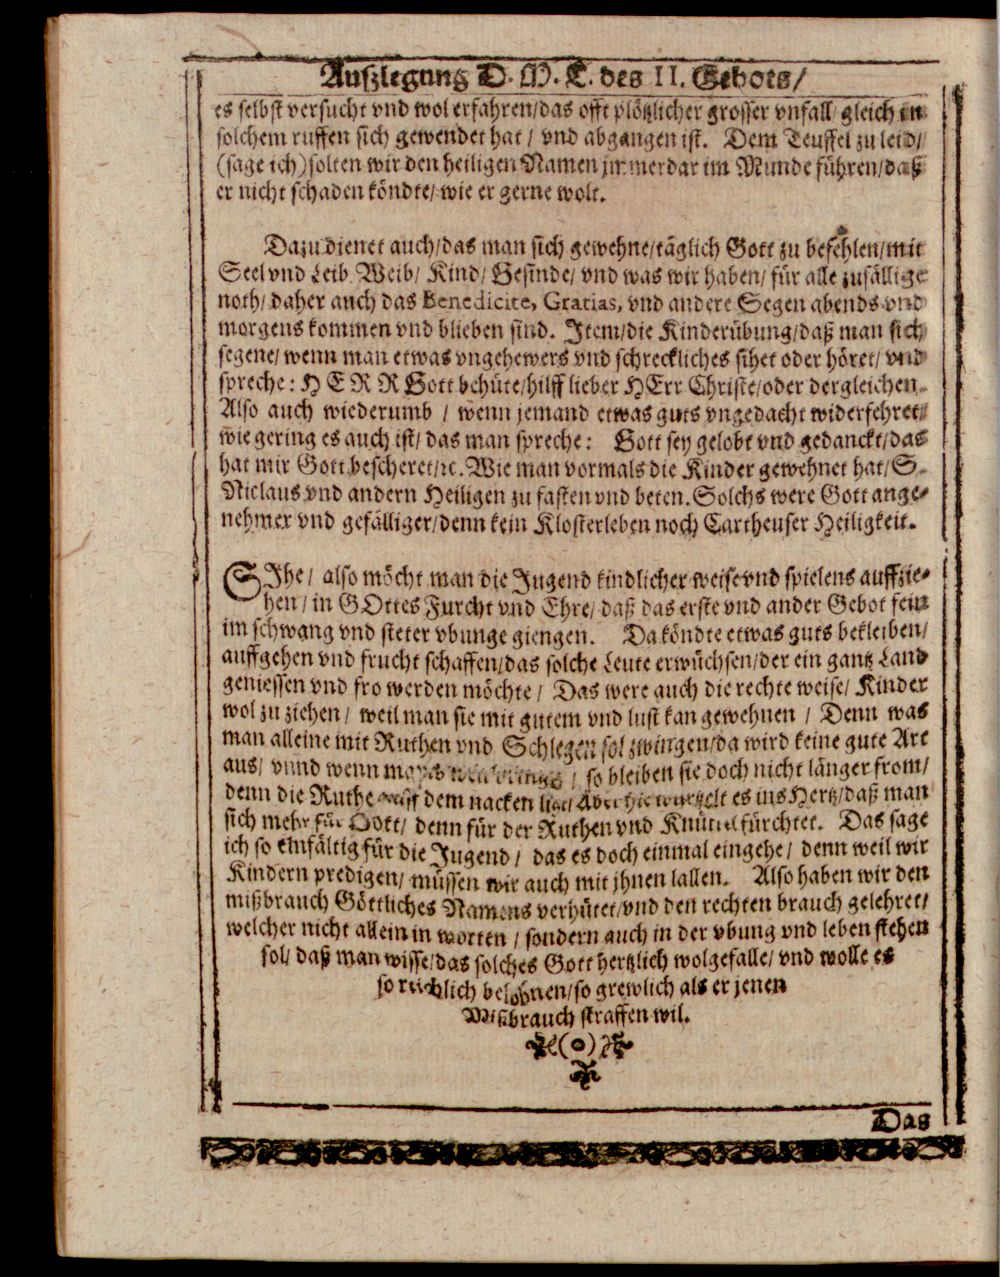 Auſzlegung D. M. L. des II. Gebots/
es ſelbſt verſucht vnd wol erfahren/das offt plötzlicher groſſer vnfall/ gleich in
ſolchem ruffen ſich gewendet hat / vnd abgangen iſt. Dem Teuffel zu leid/
(ſage ich) ſolten wir den heiligen Namen jmmerdar im Munde führen/daß
er nicht ſchaden köndte/ wie er gerne wolt.
Dazu dienet auch/das man ſich gewehne/täglich Gott zu befehlen/mit
Seel vnd Leib/ Weib/ Kind/ Geſinde/ vnd was wir haben/ für alle zufällige
noth/ daher auch das Benedicite, Gratias, vnd andere Segen abends vnd
morgens kommen vnd blieben ſind. Item/die Kinderübung/daß man ſich
ſegene/ wenn man etwas vngehewers vnd ſchreckliches ſihet oder höret/ vnd
ſpreche: HERR Gott behüte/hilff lieber HErr Chriſte/oder dergleichen.
Alſo auch wiederumb / wenn jemand etwas guts vngedacht widerfehret/
wie gering es auch iſt/ das man ſpreche: Gott ſey gelobt vnd gedanckt/das
hat mir Gott beſcheret/ꝛc. Wie man vormals die Kinder gewehnet hat/ S.
Niclaus vnd andern Heiligen zu faſten vnd beten. Solchs were Gott ange-
nehmer vnd gefälliger/denn kein Kloſterleben noch Cartheuſer Heiligkeit.
SIhe / alſo möcht man die Jugend kindlicher weiſe vnd ſpielens auffzie-
hen / in GOttes Furcht vnd Ehre/ daß das erſte vnd ander Gebot fein
im ſchwang vnd ſteter vbunge giengen. Da köndte etwas guts bekleiben/
auffgehen vnd frucht ſchaffen/das ſolche Leute erwüchſen/der ein gantz Land
genieſſen vnd fro werden möchte / Das were auch die rechte weiſe/ Kinder
wol zu ziehen / weil man ſie mit gutem vnd luſt kan gewehnen / Denn was
man alleine mit Ruthen vnd Schlegen ſol zwingen/da wird keine gute Art
aus/ vnnd wenn / ſo bleiben ſie doch nicht länger from/
denn die Ruthe auff dem nacken ligt/ Aber hie wurtzelt es ins Hertz/daß man
ſich mehr für Gott/ denn für der Ruthen vnd Knüttel fürchtet. Das ſage
ich ſo einfältig für die Jugend / das es doch einmal eingehe / denn weil wir
Kindern predigen/ müſſen wir auch mit jhnen lallen. Alſo haben wir den
mißbrauch Göttliches Namens verhütet/vnd den rechten brauch gelehret/
welcher nicht allein in worten / ſondern auch in der vbung vnd leben ſtehen
ſol/ daß man wiſſe/das ſolches Gott hertzlich wolgefalle/ vnd wolle es
ſo reichlich belohnen/ſo grewlich als er jenen
Mißbrauch ſtraffen wil.
Das